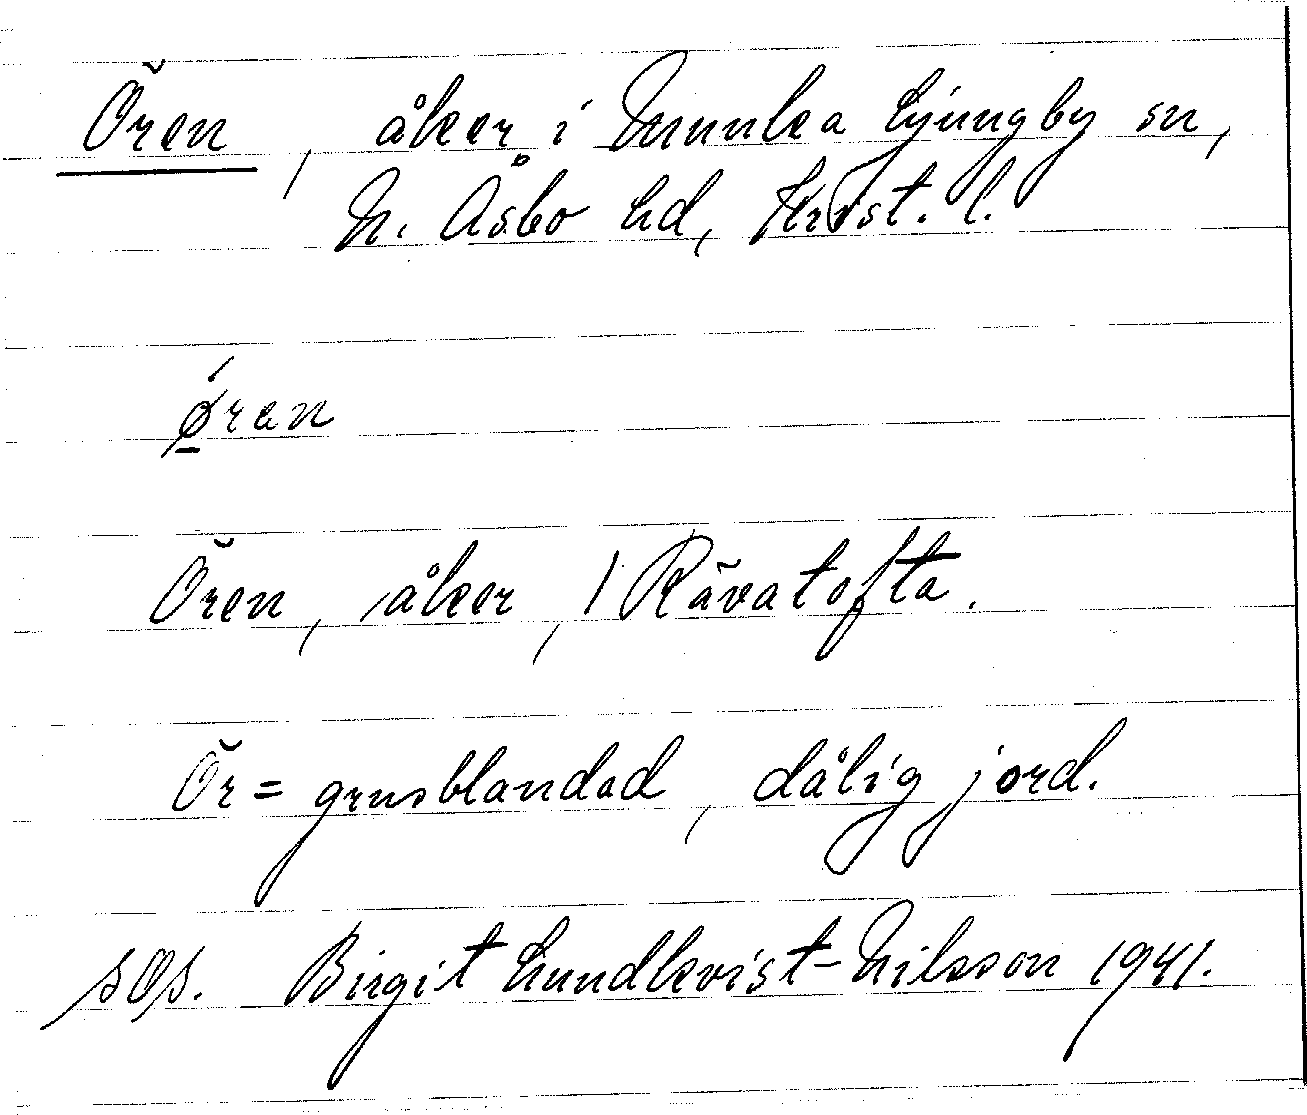 Ören, åker i Munka Ljungby sn,
N. Åsbo hd, Krist. l.
ǿren
Ören, åker, Rävatofta.
Ör = grusblandad, dålig jord.
Birgit Lundkvist-Nilsson 1941.